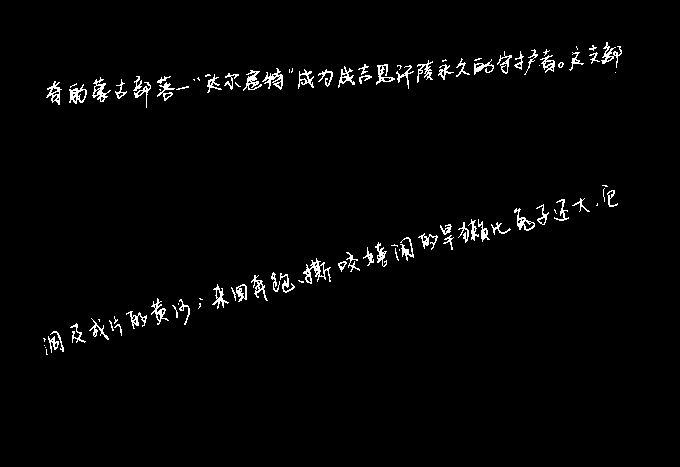 有的蒙古部落—“达尔扈特”成为成吉思汗陵永久的守护者。这支部
洞及成片的黄沙；来回奔跑、撕咬嬉闹的旱獭比兔子还大,它